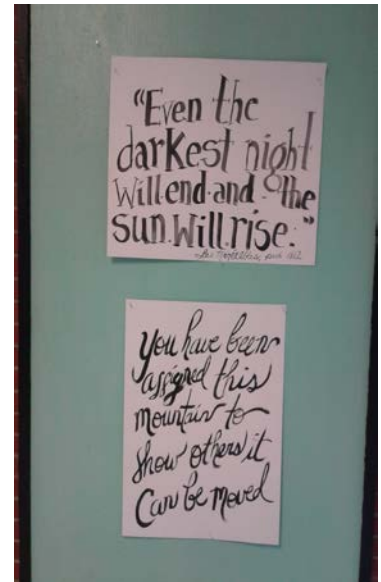 "Even the
darkest night
Will.end.and.the
sun.Will.rise."
You have been
assigned this
mountain to
show others it
Can be moved